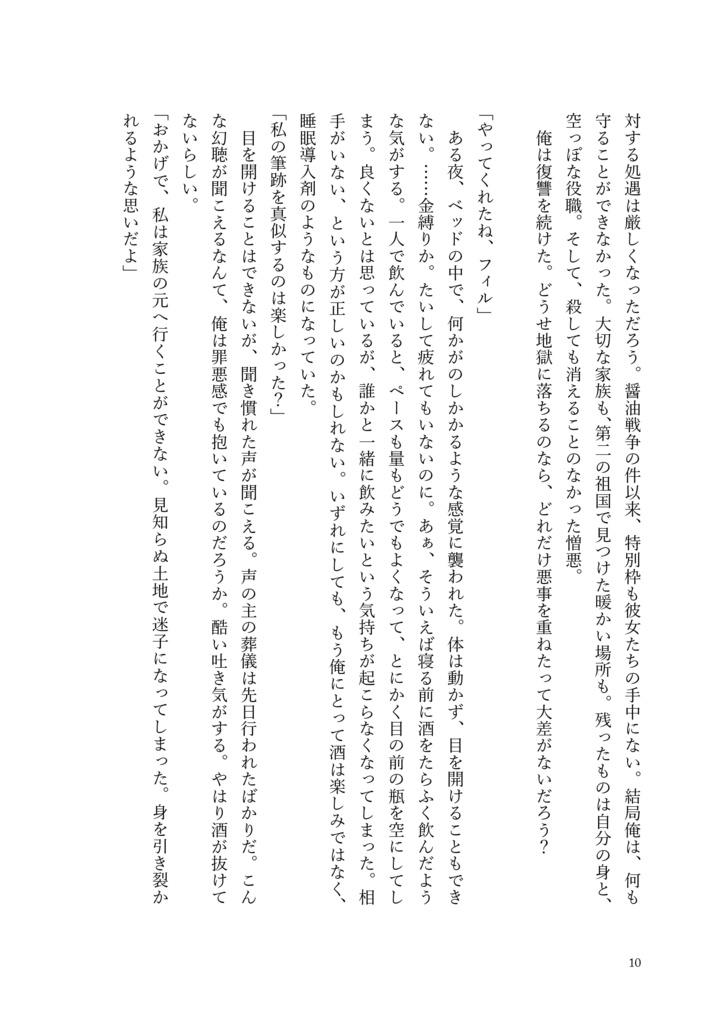 対する処遇は厳しくなっただろう。醤油戦争の件以来、特別枠も彼女たちの手中にない。結局俺は、何も
守ることができなかった。大切な家族も、第二の祖国で見つけた暖かい場所も。残ったものは自分の身と、
空っぽな役職。そして、殺しても消えることのなかった憎悪。
俺は復讐を続けた。どうせ地獄に落ちるのなら、どれだけ悪事を重ねたって大差がないだろう？
「やってくれたね、フィル」
ある夜、ベッドの中で、何かがのしかかるような感覚に襲われた。体は動かず、目を開けることもでき
ない。……金縛りか。たいして疲れてもいないのに。あぁ、そういえば寝る前に酒をたらふく飲んだよう
な気がする。一人で飲んでいると、ペースも量もどうでもよくなって、とにかく目の前の瓶を空にしてし
まう。良くないとは思っているが、誰かと一緒に飲みたいという気持ちが起こらなくなってしまった。相
手がいない、という方が正しいのかもしれない。いずれにしても、もう俺にとって酒は楽しみではなく、
睡眠導入剤のようなものになっていた。
「私の筆跡を真似するのは楽しかった？」
目を開けることはできないが、聞き慣れた声が聞こえる。声の主の葬儀は先日行われたばかりだ。こん
な幻聴が聞こえるなんて、俺は罪悪感でも抱いているのだろうか。酷い吐き気がする。やはり酒が抜けて
ないらしい。
「おかげで、私は家族の元へ行くことができない。見知らぬ土地で迷子になってしまった。身を引き裂か
れるような思いだよ」
10